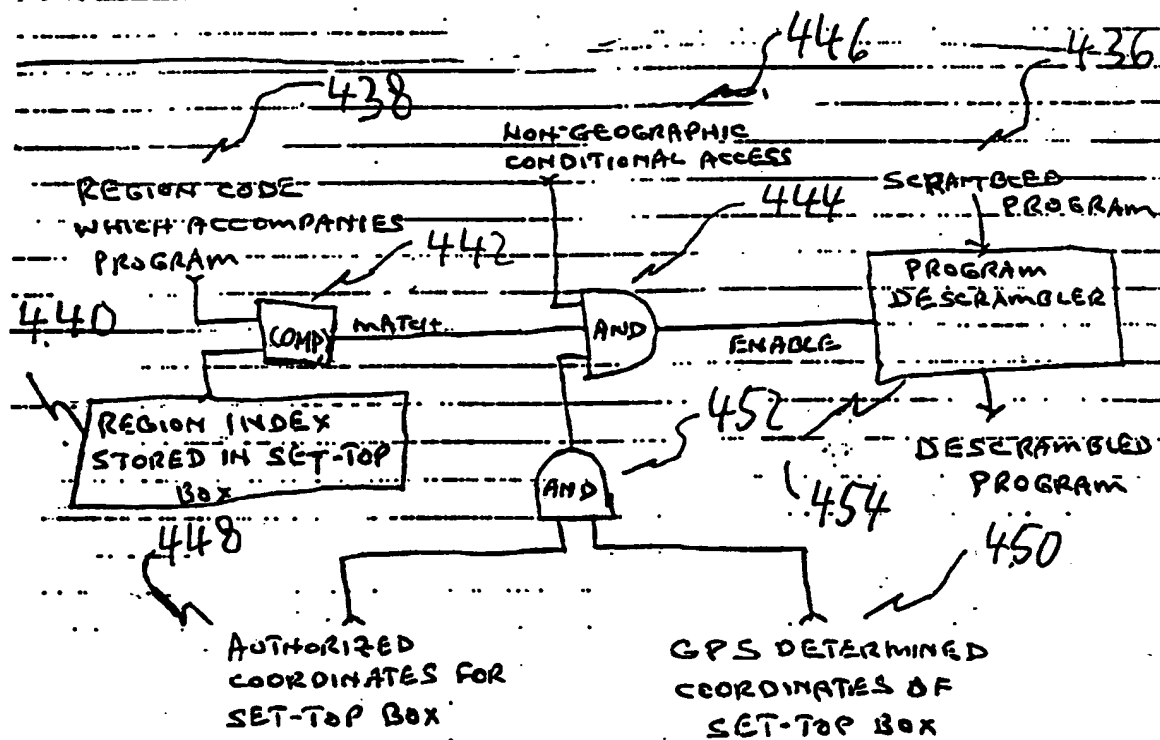 446
436
438
NON-GEOGRAPHIC
CONDITIONAL ACCESS
REGION CODE
WHICH ACCOMPANIES
PROGRAM
444
SCRAMBLED
PROGRAM
442
440
COMP
MATCH
AND
ENABLE
PROGRAM
DESCRAMBLER
REGION INDEX
STORED IN SET-TOP
BOX
452
AND
454
DESCRAMBLED
PROGRAM
448
450
AUTHORIZED
COORDINATES FOR
SET-TOP BOX
GPS DETERMINED
COORDINATES OF
SET-TOP BOX